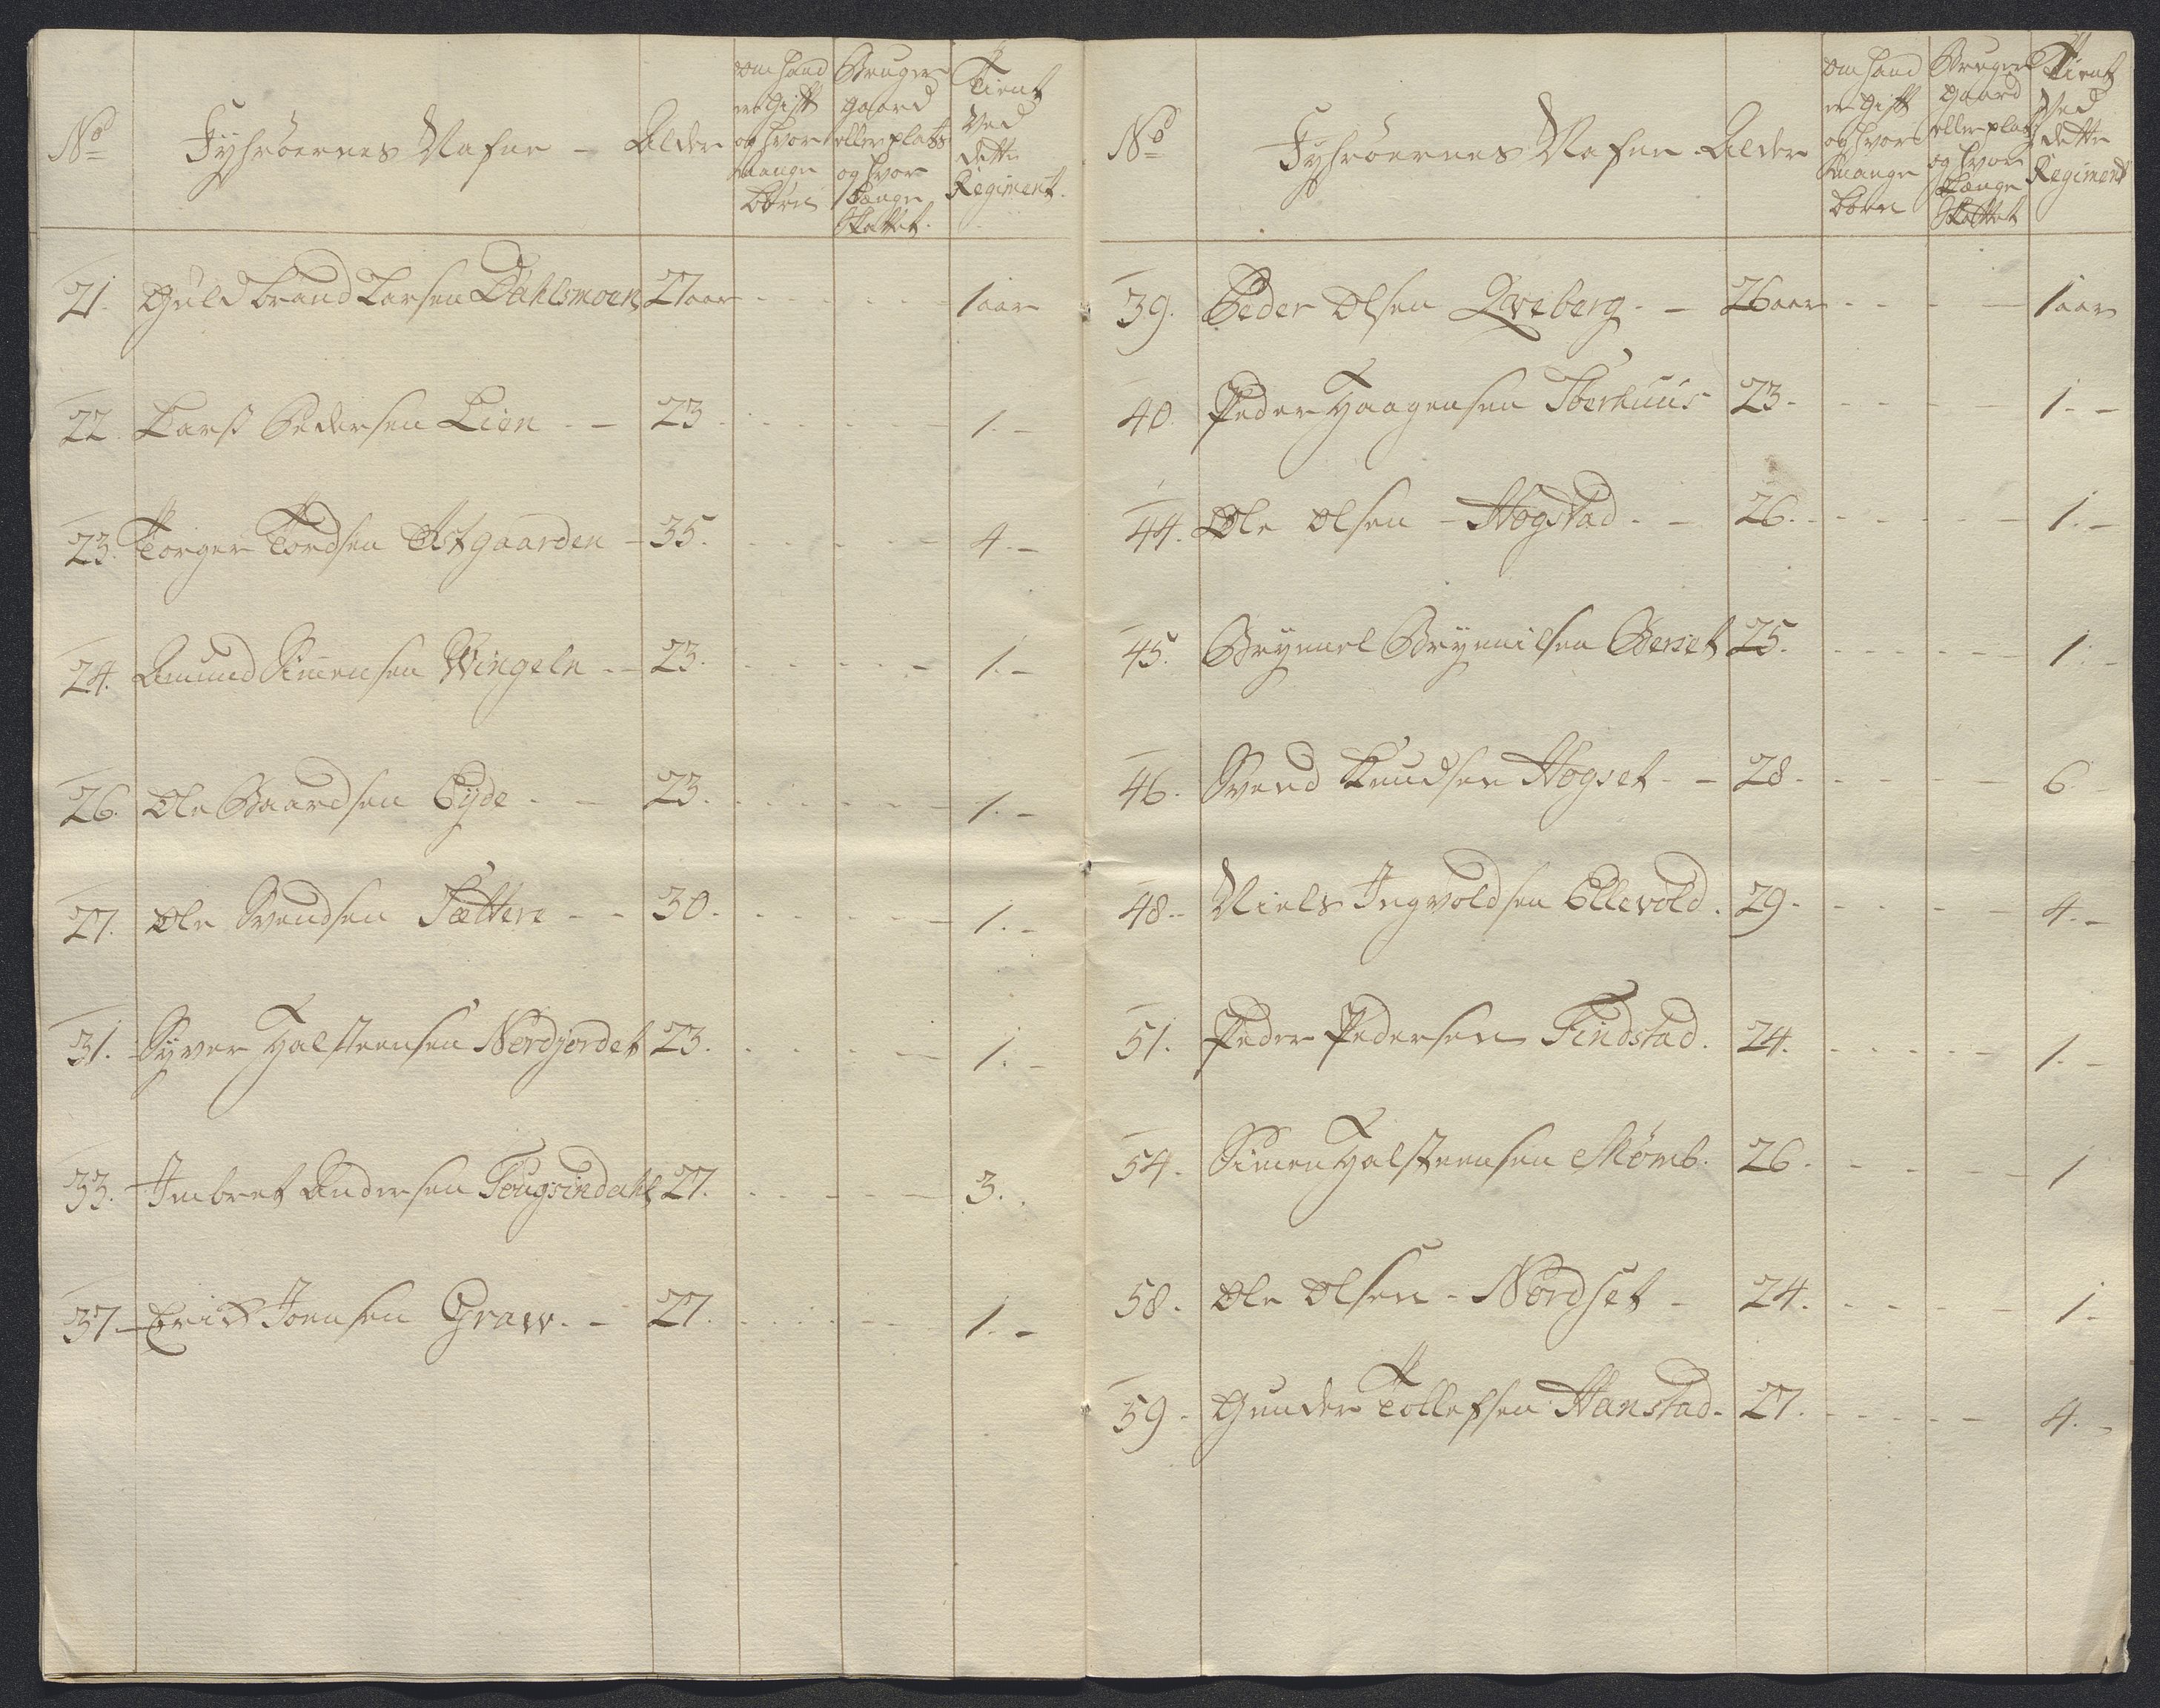 No Fyhrøernes Nafne - Alder
om hand
er gift
og hvor
mange
børn
Bruger
gaard
eller plads
og hvor
længe
skattet.
Tient
Ved
dette
Regiment.
21. Guldbrand Larsen Dahlsmoen 27 aar - - - - 1 aar
22. Larss Pedersen Lien - - 23 - - - - 1. -
23. Torger Tordsen Astgaarden - 35. - - - - 4. -
24. Amund Simensen Wingeln - - 23. - - - - 1. -
26. Ole Baardsen Eyde - - 23. - - - - 1. -
27. Ole Svendsen Sættere - - 30. - - - - 1. -
31. Syver Halsteensen Nordjordet 23. - - - - 1. -
33. Imbret Andersen 27. - - - - 3. .
37 - Erich Joensen Graw. - 27. - - - - 1. -
No Fyhrøernes Nafne. Alder
om hand
er gift
og hvor
mange
børn
Bruger
gaard
eller plads
og hvor
længe
skattet
Tient
Ved
dette
Regiment
39. Peder Olsen Qveberg. - 26 aar - - - 1 aar
40. Peder Haagensen 23. - - - - 1. -
44. Ole Olsen - Hogstad. - 26. - - - - 1. -
45. Brynnel Brynnilsen Berset 25. - - - - 1. -
46. Svend Knudsen Hogset. - 28. - - - - 6. -
48. - Niels Ingvoldsen Ellevold. 29. - - - - 4. -
51. Peder Pedersen Findstad. 24. - - - - 1. -
54. Simen Halsteensen Mømb. 26. - - - - 1
58. Ole Olsen - Nordset - 24. - - - - 1. -
59. Gunder Tollefsen Hanstad. 27. - - - - 4. -